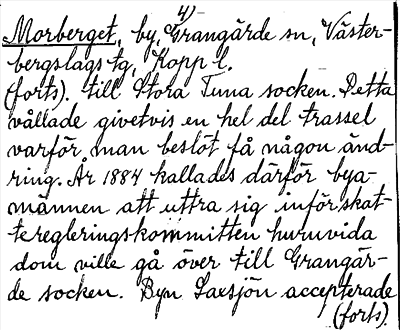 4)
Morberget, by, Grangärde sn, Väster-
bergslags tg, Kopp l.
(forts). till Stora Tuna socken. Detta
vållade givetvis en hel del trassel
varför man beslöt få någon änd-
ring. År 1884 kallades därför bya-
männen att uttra sig inför skat-
teregleringskommitten huruvida
dom ville gå över till Grangär-
de socken. Byn Laxsjön accepterade
(forts).